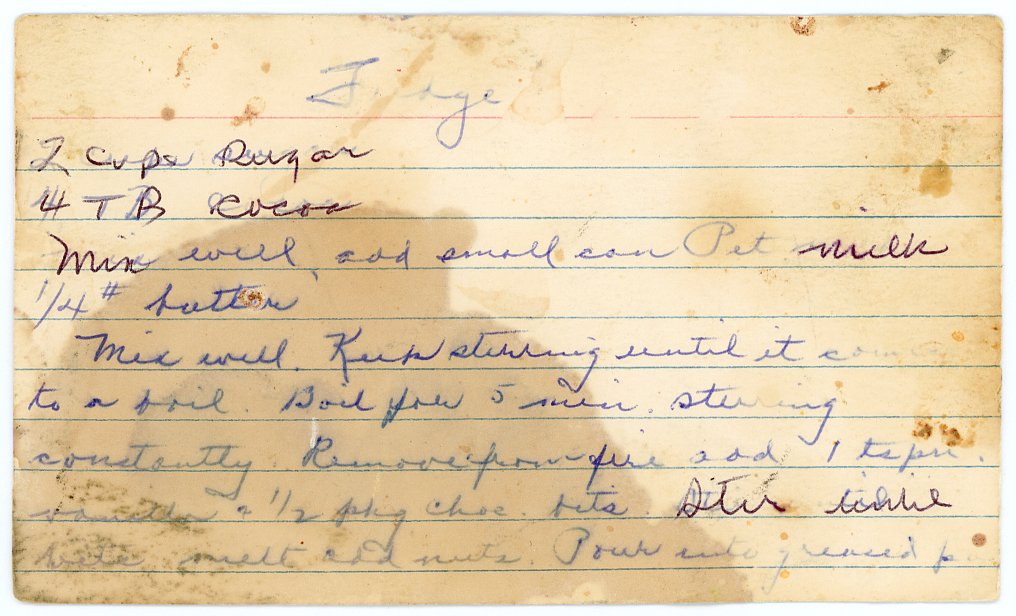 Fudge
2 Cups sugar
4 TB Cocoa
Mix well, add small can Pet milk
1/4 # butter
Mix well. Keep sterring until it comes
to a boil. Boil for 5 min. sterring
constantly. Remove from fire add 1 tspn.
vanilla & 1/2 pkg choc. bits. Ster until
bits melt add nuts. Pour into greased